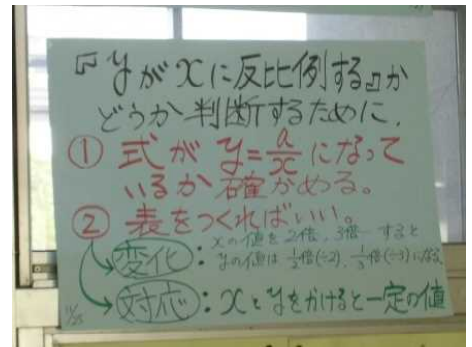 『yがxに反比例する』か
どうか判断するために、
① 式が y=a/x になって
いるか確かめる。
② 表をつくればいい。
変化：xの値を2倍、3倍…すると
yの値は1/2倍(÷2)、1/3倍(÷3)になる
対応：xとyをかけると一定の値
11/25